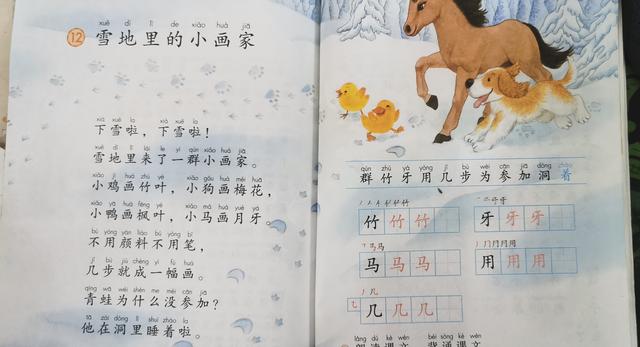 xuě dì lǐ de xiǎo huà jiā
12 雪地里的小画家
xià xuě la xià xuě la
下雪啦，下雪啦！
xuě dì lǐ lái le yì qún xiǎo huà jiā
雪地里来了一群小画家。
xiǎo jī huà zhú yè xiǎo gǒu huà méi huā
小鸡画竹叶，小狗画梅花，
xiǎo yā huà fēng yè xiǎo mǎ huà yuè yá
小鸭画枫叶，小马画月牙。
bú yòng yán liào bú yòng bǐ
不用颜料不用笔，
jǐ bù jiù chéng yì fú huà
几步就成一幅画。
qīng wā wèi shén me méi cān jiā
青蛙为什么没参加？
tā zài dòng lǐ shuì zháo la
他在洞里睡着啦。
qún zhú yá yòng jǐ bù wèi cān jiā dòng zháo
群竹牙用几步为参加洞着
竹竹竹 牙牙牙
马马马 用用用
几几几
lǎng dú kè wén bèi sòng kè wén
朗读课文 背诵课文